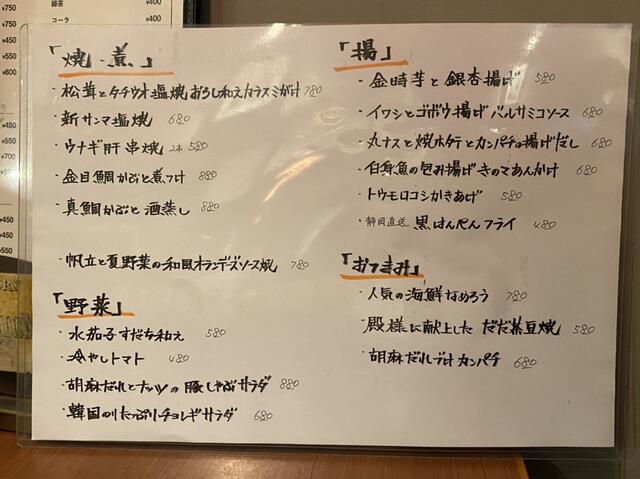 緑茶
コーラ ¥400
¥400
「焼・煮」
・松茸とタチウオ塩焼おろし和えカラスミがけ 780
・新サンマ塩焼 680
・ウナギ肝串焼 2本 580
・金目鯛かぶと煮つけ 880
・真鯛かぶと酒蒸し 880
・帆立と夏野菜の和風オランデーズソース焼 780
「野菜」
・水茄子すだち和え 580
・冷やしトマト 480
・胡麻だれとナッツの豚しゃぶサラダ 880
・韓国のりたっぷりチョレギサラダ 680
「揚」
・金時芋と銀杏揚げ 580
・イワシとゴボウ揚げバルサミコソース 680
・丸ナスと焼ホタテとカンパチの揚げだし 680
・白身魚の包み揚げきのこあんかけ 680
・トウモロコシかきあげ 580
・静岡直送 黒はんぺんフライ 480
「おつまみ」
・人気の海鮮なめろう 780
・殿様に献上しただだ茶豆焼 580
・胡麻だれづけカンパチ 680